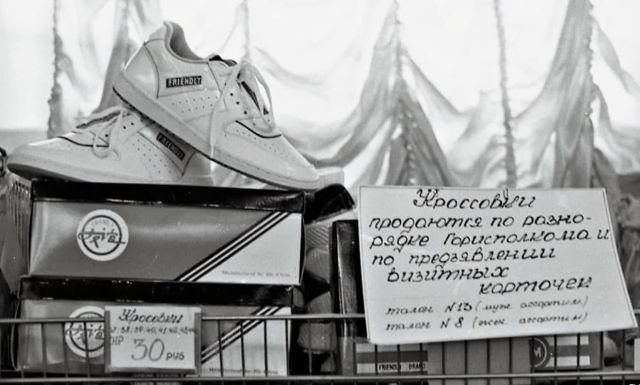 FRIENDLY
FRIENDLY
Кроссовки
продаются по разно-
рядке Горисполкома и
по предъявлении
визитных
карточек
талон N 13 (муж. ассортим)
талон N 8 (жен. ассортим)
Кроссовки
30 руб
FRIENDLY BRAND